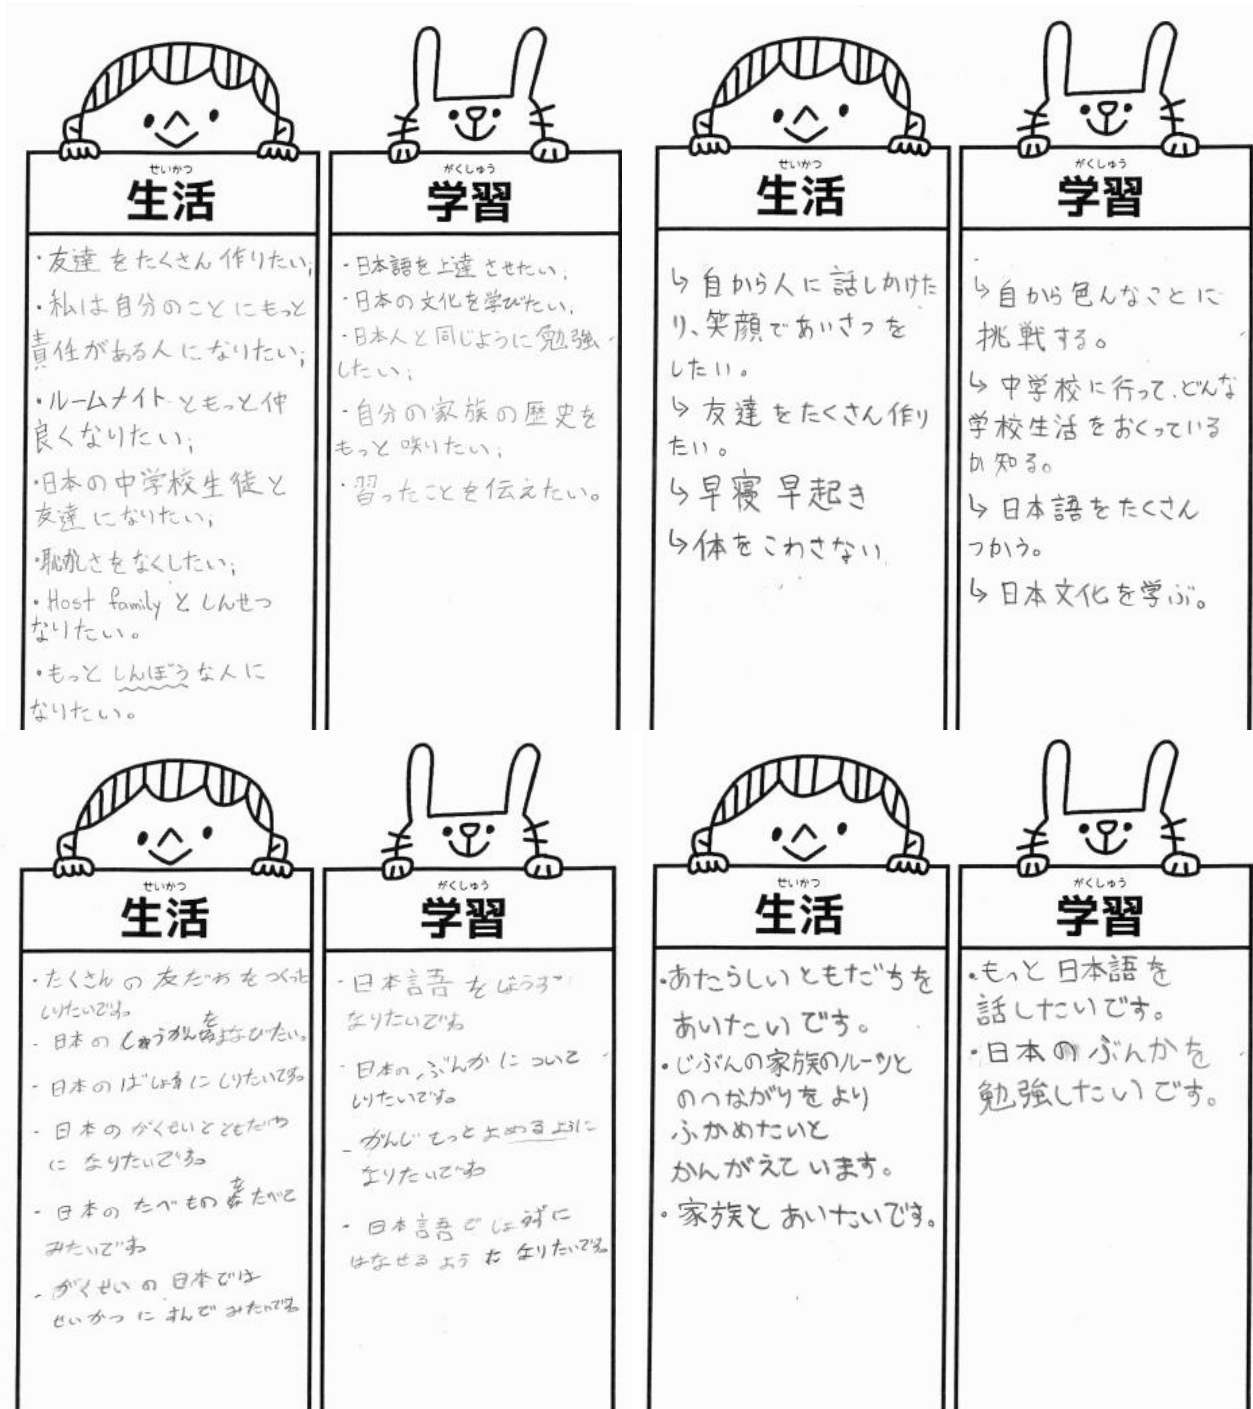 せいかつ
生活
・友達をたくさん作りたい;
・私は自分のことにもっと
責任がある人になりたい;
・ルームメイトともっと仲
良くなりたい;
・日本の中学校生徒と
友達になりたい;
・恥かしさをなくしたい;
・Host familyとしんせつ
なりたい。
・もっとしんぼうな人に
なりたい。
がくしゅう
学習
・日本語を上達させたい;
・日本の文化を学びたい;
・日本人と同じように勉強
したい;
・自分の家族の歴史を
もっと りたい;
・習ったことを伝えたい。
せいかつ
生活
↳自から人に話しかけた
り、笑顔であいさつを
したい。
↳友達をたくさん作り
たい。
↳早寝早起き
↳体をこわさない
がくしゅう
学習
↳自から色んなことに
挑戦する。
↳中学校に行って、どんな
学校生活をおくっている
か知る。
↳日本語をたくさん
つかう。
↳日本文化を学ぶ。
せいかつ
生活
・たくさんの友だちをつくっと
しりたいです。
- 日本の しゅうかんをまなびたい。
- 日本の にしりたいです。
- 日本のがくせいとともだち
になりたいです。
- 日本のたべものをたべて
みたいです
- がくせいの日本では
せいかつにすんでみたいです。
がくしゅう
学習
- 日本語をじょうず
なりたいです
- 日本のぶんかについて
しりたいです。
- かんじもっとよめるように
なりたいです
- 日本語で に
はなせるよう なりたいです。
せいかつ
生活
・あたらしいともだちを
あいたいです。
・じぶんの家族のルーツと
のつながりをより
ふかめたいと
かんがえています。
・家族とあいたいです。
がくしゅう
学習
・もっと日本語を
話したいです。
・日本のぶんかを
勉強したいです。